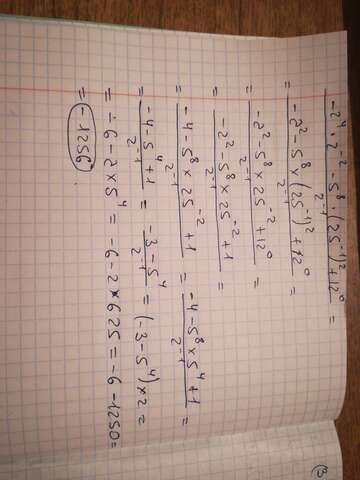 ③
(-2⁴ · 2⁻² - 5⁸ · (25⁻¹)² + 12⁰) / 2⁻¹ =
= (-2² - 5⁸ × (25⁻¹)² + 12⁰) / 2⁻¹ =
= (-2² - 5⁸ × 25⁻² + 12⁰) / 2⁻¹ =
= (-2² - 5⁸ × 25⁻² + 1) / 2⁻¹ =
= (-4 - 5⁸ × 25⁻² + 1) / 2⁻¹ = (-4 - 5⁸ × 5⁴ + 1) / 2⁻¹ =
= (-4 - 5⁴ + 1) / 2⁻¹ = (-3 - 5⁴) / 2⁻¹ = (-3 - 5⁴) × 2 =
= -6 - 2 × 5⁴ = -6 - 2 × 625 = -6 - 1250 =
= -1256